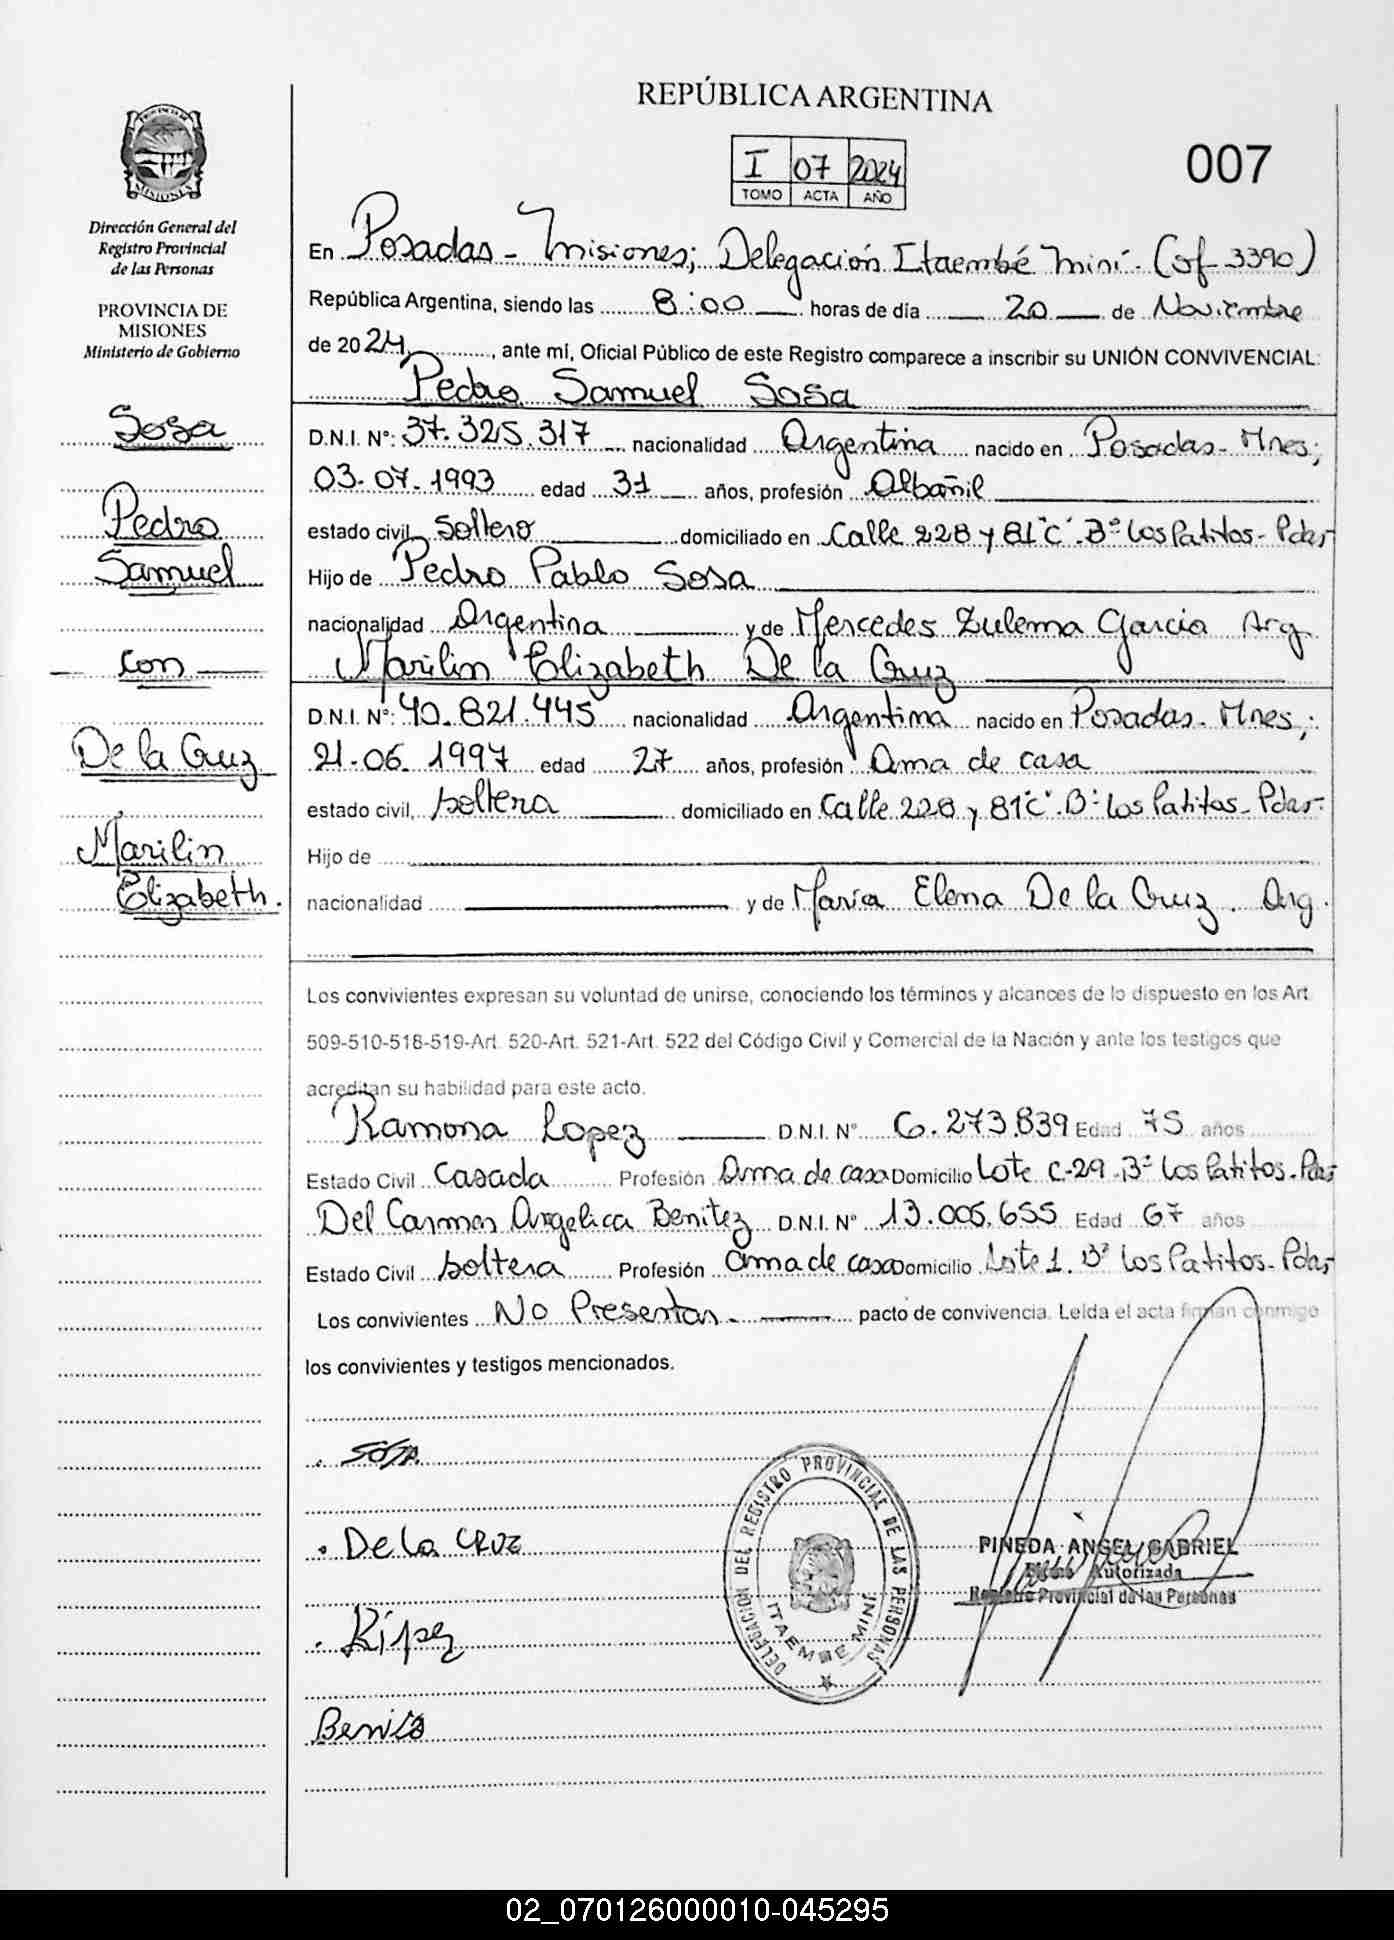 REPÚBLICA ARGENTINA
I 07 2024
TOMO ACTA AÑO
007
PROVINCIA DE
MISIONES
Dirección General del
Registro Provincial
de las Personas
PROVINCIA DE
MISIONES
Ministerio de Gobierno
Sosa
Pedro
Samuel
con
De la Cruz
Marilin
Elizabeth.
En Posadas - Misiones; Delegación Itaembé Miní - (of 3390)
República Argentina, siendo las 8:00 horas de día 20 de Noviembre
de 2024, ante mí, Oficial Público de este Registro comparece a inscribir su UNIÓN CONVIVENCIAL:
Pedro Samuel Sosa
D.N.I. Nº: 37.325.317 nacionalidad Argentina nacido en Posadas - Mnes;
03-07-1993 edad 31 años, profesión Albañil
estado civil, soltero domiciliado en Calle 228 y 81"C" Bº Los Patitos - Pdas
Hijo de Pedro Pablo Sosa
nacionalidad Argentina y de Mercedes Zulema Garcia Arg.
Marilin Elizabeth De la Cruz
D.N.I. Nº: 40.821.445 nacionalidad Argentina nacido en Posadas - Mnes;
21-06-1997 edad 27 años, profesión Ama de casa
estado civil, soltera domiciliado en Calle 228 y 81"C" Bº Los Patitos - Pdas-
Hijo de
nacionalidad y de María Elena De la Cruz. Arg.
Los convivientes expresan su voluntad de unirse, conociendo los términos y alcances de lo dispuesto en los Art.
509-510-518-519-Art. 520-Art. 521-Art. 522 del Código Civil y Comercial de la Nación y ante los testigos que
acreditan su habilidad para este acto.
Ramona Lopez D.N.I. Nº 6.273.839 Edad 75 años
Estado Civil Casada Profesión Ama de casa Domicilio Lote C-29 Bº Los Patitos - Pdas
Del Carmen Angelica Benitez D.N.I. Nº 13.005.655 Edad 67 años
Estado Civil soltera Profesión ama de casa Domicilio Lote 1. Bº Los Patitos - Pdas
Los convivientes No Presentan - pacto de convivencia. Leída el acta firman conmigo
los convivientes y testigos mencionados.
SOSA
De la CRUZ
Benit
DELEGACION DEL REGISTRO PROVINCIAL DE LAS PERSONAS
ITAEMBE MINI
PINEDA ANGEL GABRIEL
Autorizada
Registro Provincial de las Personas
02_070126000010-045295